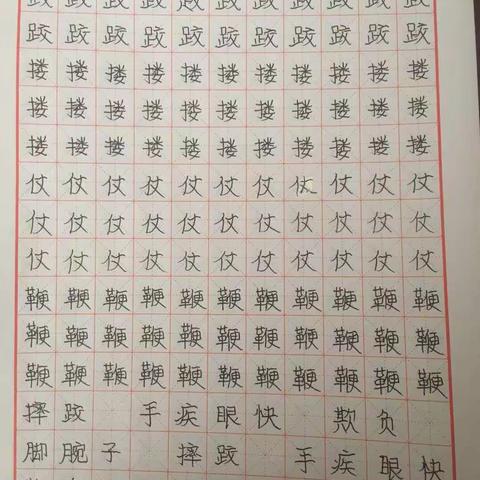 跤跤跤跤跤跤跤跤跤跤跤
跤跤跤跤跤跤跤跤跤跤跤
搂搂搂搂搂搂搂搂搂搂搂
搂搂搂搂搂搂搂搂搂搂搂
搂搂搂搂搂搂搂搂搂搂搂
仗仗仗仗仗仗仗仗仗仗仗
仗仗仗仗仗仗仗仗仗仗仗
仗仗仗仗仗仗仗仗仗仗仗
鞭鞭鞭鞭鞭鞭鞭鞭鞭鞭鞭
鞭鞭鞭鞭鞭鞭鞭鞭鞭鞭鞭
鞭鞭鞭鞭鞭鞭鞭鞭鞭鞭鞭
摔跤 手疾眼快 欺负
脚腕子 摔跤 手疾眼快